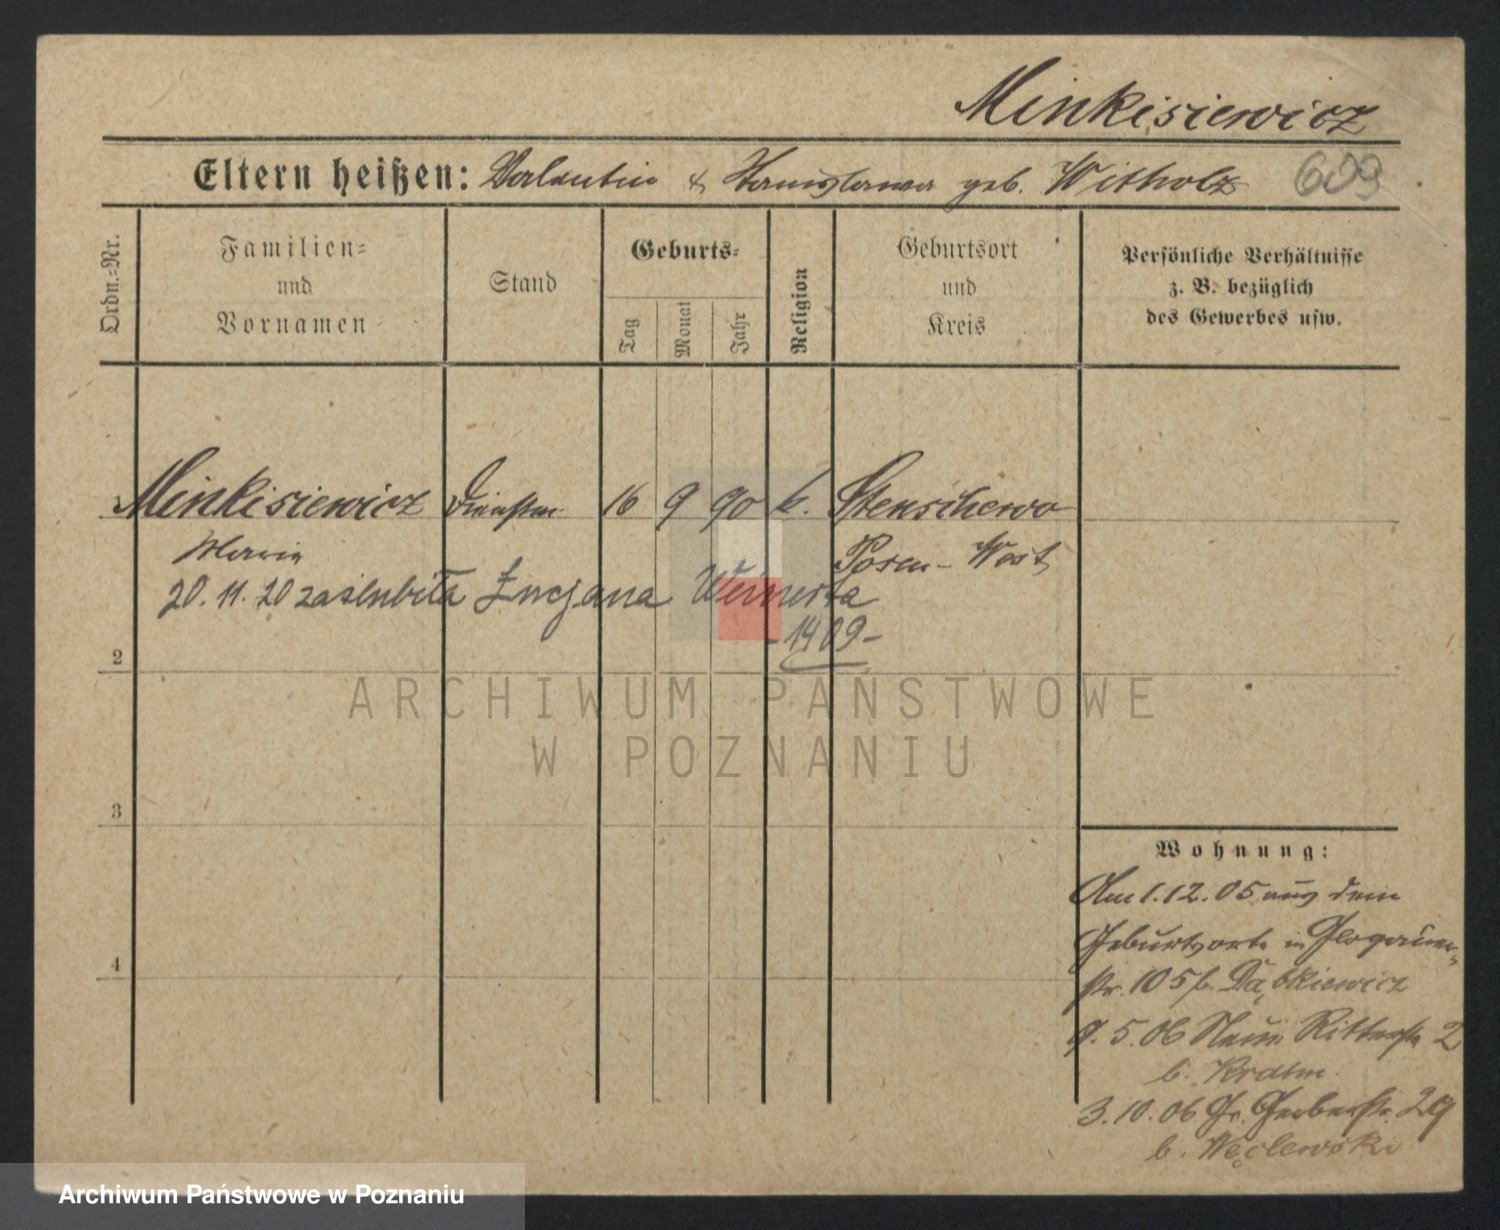 Minkisiewicz
Eltern heißen: Valentin & Stanislawa geb. Witholz 609
Ordn.-Nr.
Familien-
und
Vornamen
Stand
Geburts-
Tag
Monat
Jahr
Religion
Geburtsort
und
Kreis
Persönliche Verhältnisse
z. B. bezüglich
des Gewerbes usw.
1 Minkisiewicz Dienstm. 16 9 90 k. Stenschewo
Marie Posen-West
20. 11. 20 zaślubiła Łucjana Weinerta
-1409-
2
3
4
ARCHIWUM PAŃSTWOWE
W POZNANIU
Wohnung:
Am 1.12.05 aus dem
Geburtsorte in Glogauer-
str. 105 b. Dąbkiewicz
9. 5. 06 Neue Ritterstr 2
b.
3. 10. 06 Gr. Gerberstr. 29
b. Węclewski
Archiwum Państwowe w Poznaniu